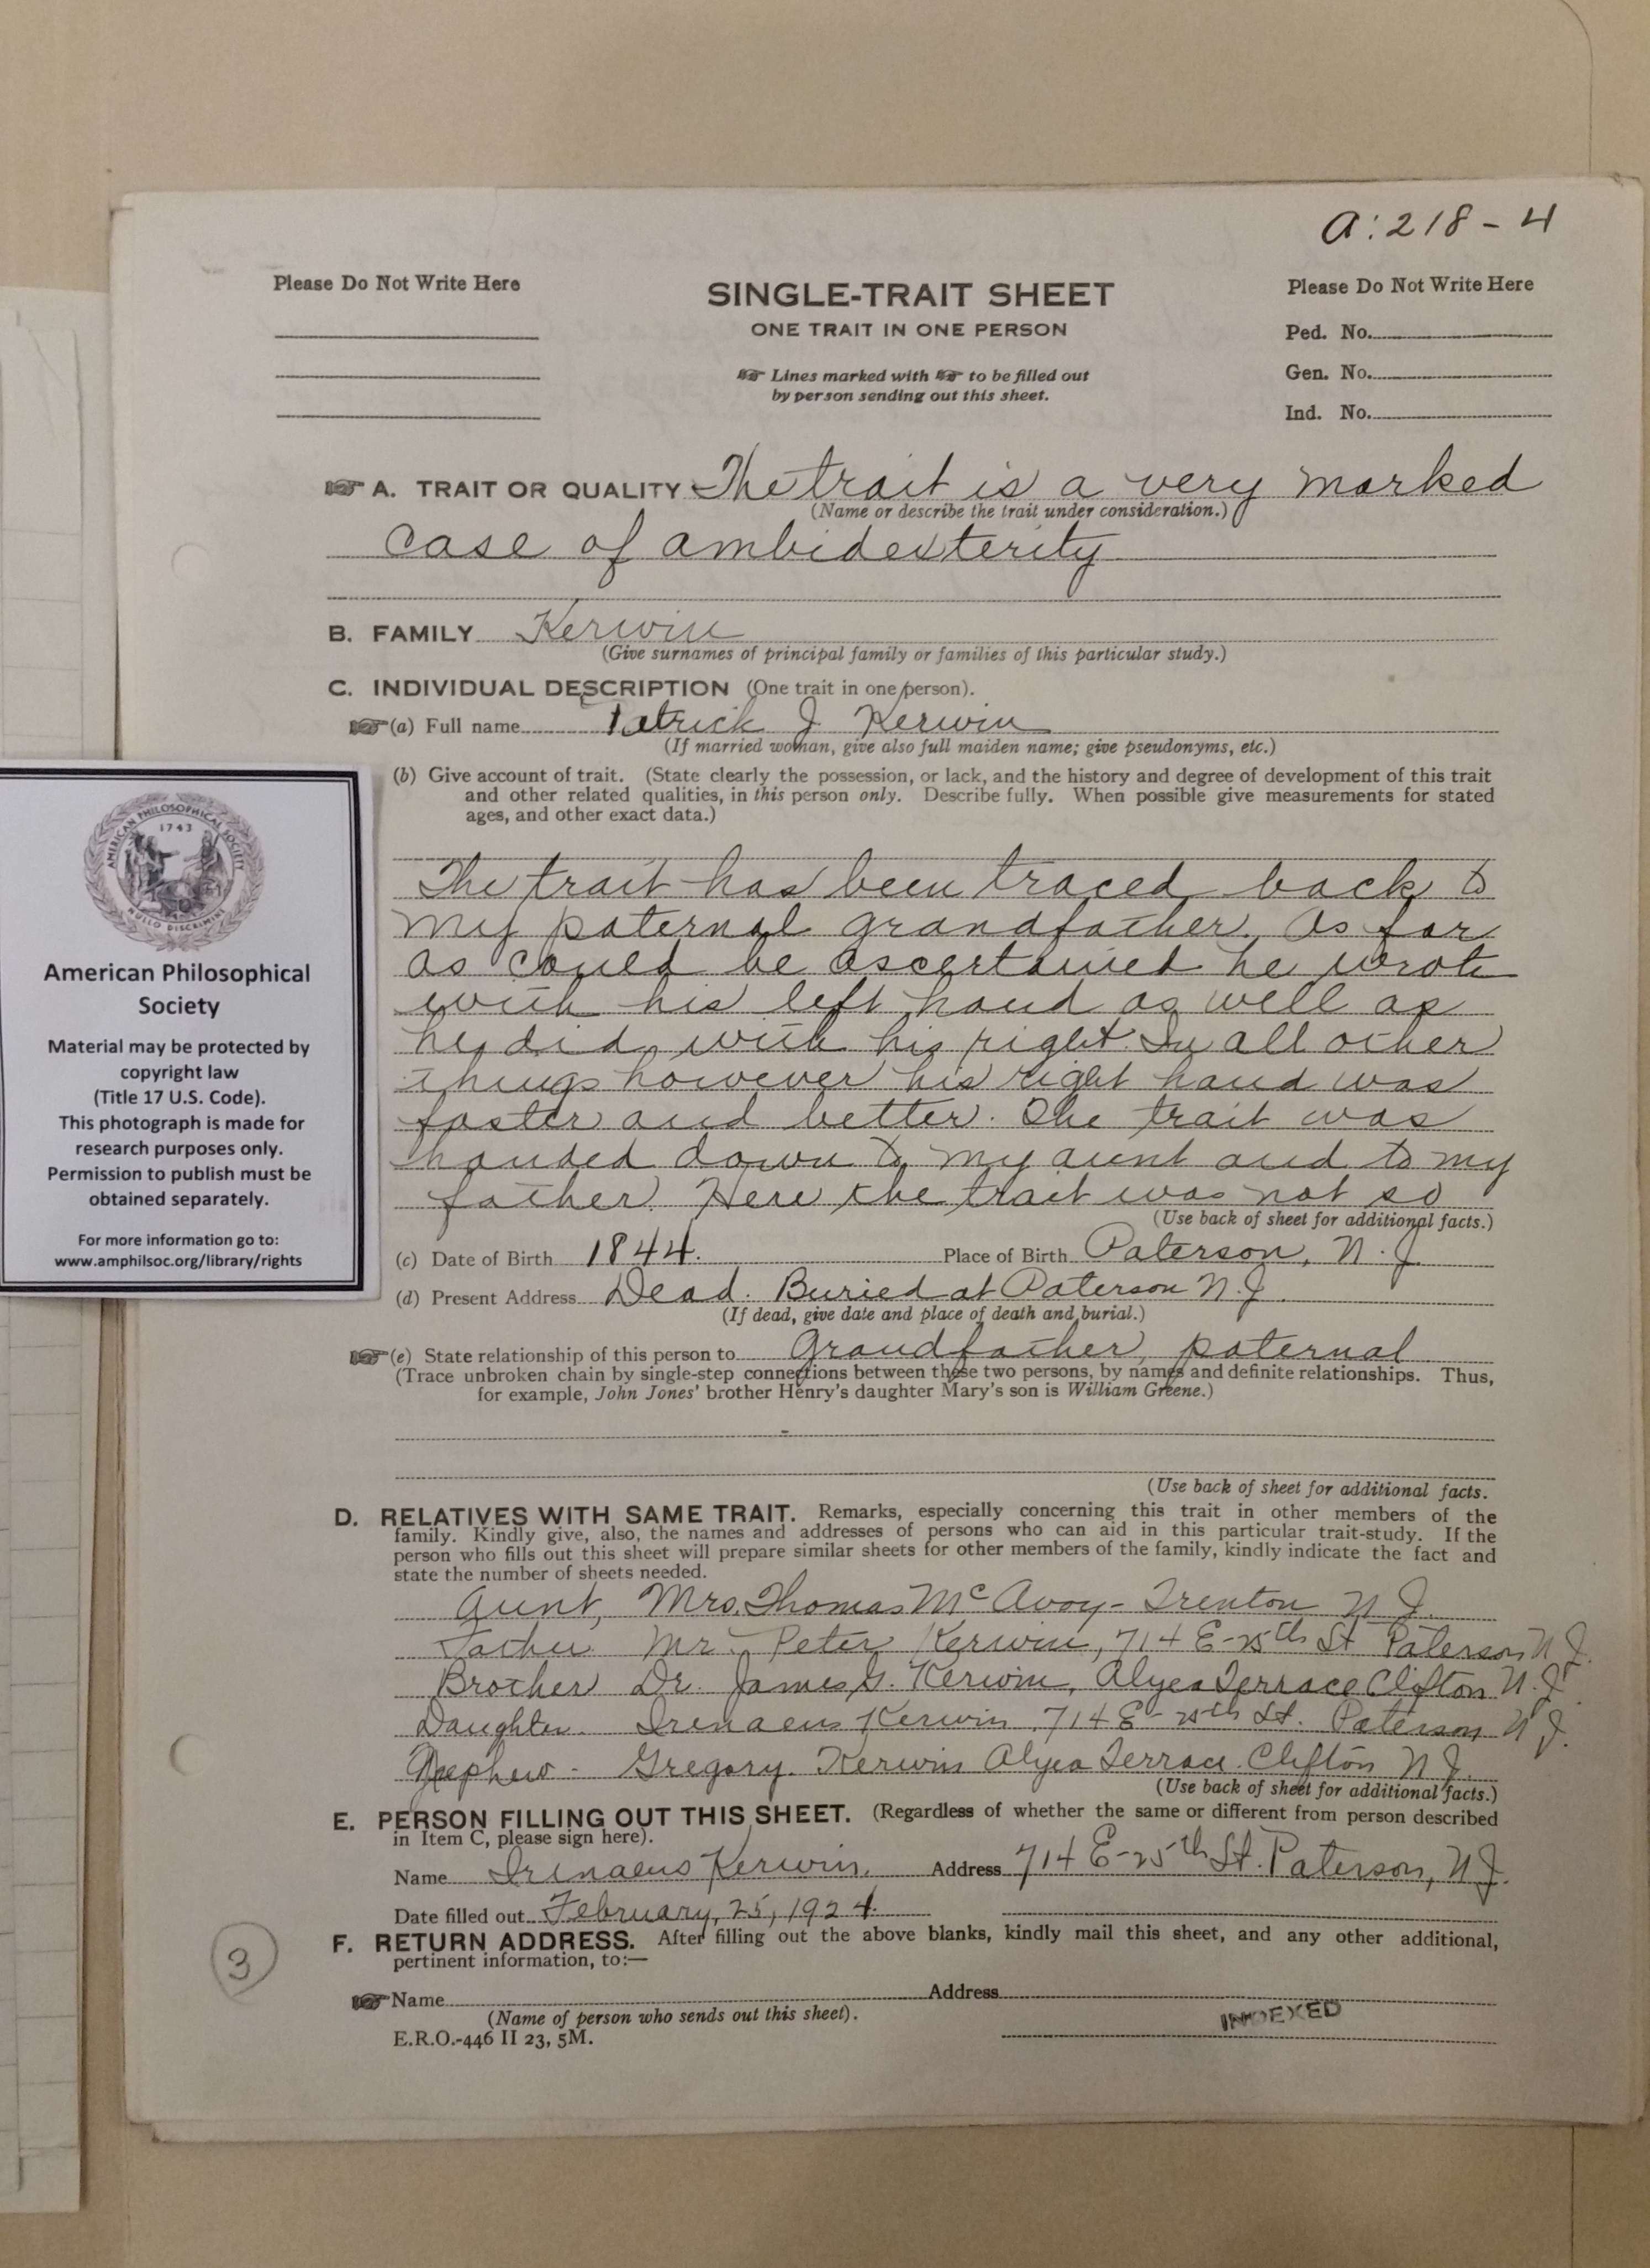 a:218-4
Please Do Not Write Here
SINGLE-TRAIT SHEET
Please Do Not Write Here
ONE TRAIT IN ONE PERSON
Ped. No.
☞ Lines marked with ☞ to be filled out
by person sending out this sheet.
Gen. No.
Ind. No.
☞ A. TRAIT OR QUALITY The trait is a very marked
(Name or describe the trait under consideration.)
case of ambidexterity
B. FAMILY Kerwin
(Give surnames of principal family or families of this particular study.)
C. INDIVIDUAL DESCRIPTION (One trait in one person).
☞ (a) Full name Patrick J Kerwin
(If married woman, give also full maiden name; give pseudonyms, etc.)
(b) Give account of trait. (State clearly the possession, or lack, and the history and degree of development of this trait
and other related qualities, in this person only. Describe fully. When possible give measurements for stated
ages, and other exact data.)
The trait has been traced back to
my paternal grandfather. As far
as could be ascertained he wrote
with his left hand as well as
he did with his right. In all other
things however his right hand was
faster and better. The trait was
handed down to my aunt and to my
father. Here the trait was not so
(Use back of sheet for additional facts.)
(c) Date of Birth 1844. Place of Birth Paterson, N.J
(d) Present Address Dead. Buried at Paterson N.J
(If dead, give date and place of death and burial.)
☞ (e) State relationship of this person to Grandfather, paternal
(Trace unbroken chain by single-step connections between these two persons, by names and definite relationships. Thus,
for example, John Jones' brother Henry's daughter Mary's son is William Greene.)
(Use back of sheet for additional facts.
D. RELATIVES WITH SAME TRAIT. Remarks, especially concerning this trait in other members of the
family. Kindly give, also, the names and addresses of persons who can aid in this particular trait-study. If the
person who fills out this sheet will prepare similar sheets for other members of the family, kindly indicate the fact and
state the number of sheets needed.
Aunt, Mrs. Thomas McAvoy- Trenton N J
Father Mr Peter Kerwin, 714 E-25th St Paterson N J.
Brother Dr. James J. Kerwin, Alyea Terrace Clifton N.J.
Daughter Irenaeus Kerwin 714 E 25th St. Paterson N.J.
Nephew- Gregory Kerwin Alyea Terrace. Clifton N J
(Use back of sheet for additional facts.)
E. PERSON FILLING OUT THIS SHEET. (Regardless of whether the same or different from person described
in Item C, please sign here).
Name Irenaeus Kerwin. Address 714 E-25th St. Paterson, N.J.
Date filled out February, 25, 1924.
F. RETURN ADDRESS. After filling out the above blanks, kindly mail this sheet, and any other additional,
pertinent information, to:—
3
☞ Name Address
(Name of person who sends out this sheet).
E.R.O.-446 II 23, 5M.
INDEXED
AMERICAN PHILOSOPHICAL SOCIETY
1743
American Philosophical
Society
Material may be protected by
copyright law
(Title 17 U.S. Code).
This photograph is made for
research purposes only.
Permission to publish must be
obtained separately.
For more information go to:
www.amphilsoc.org/library/rights